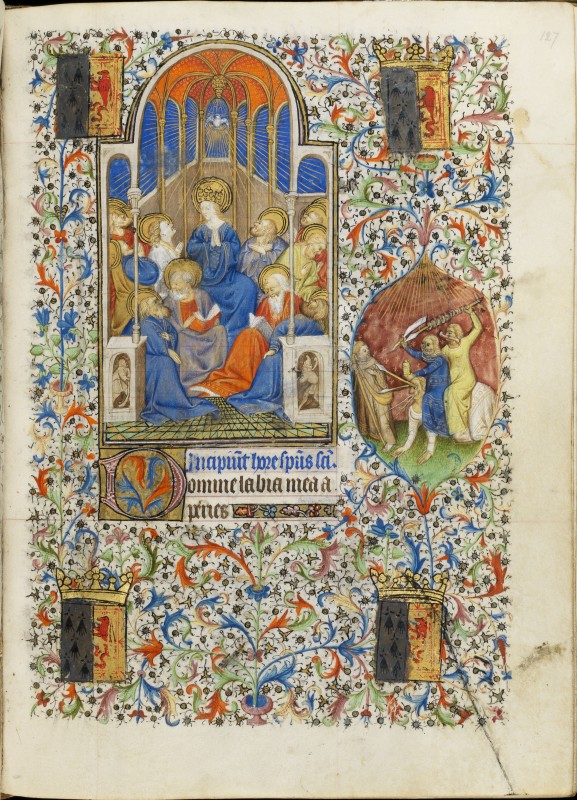 127
Incipiūt hore spūs scī.
Domine labia mea a
peries